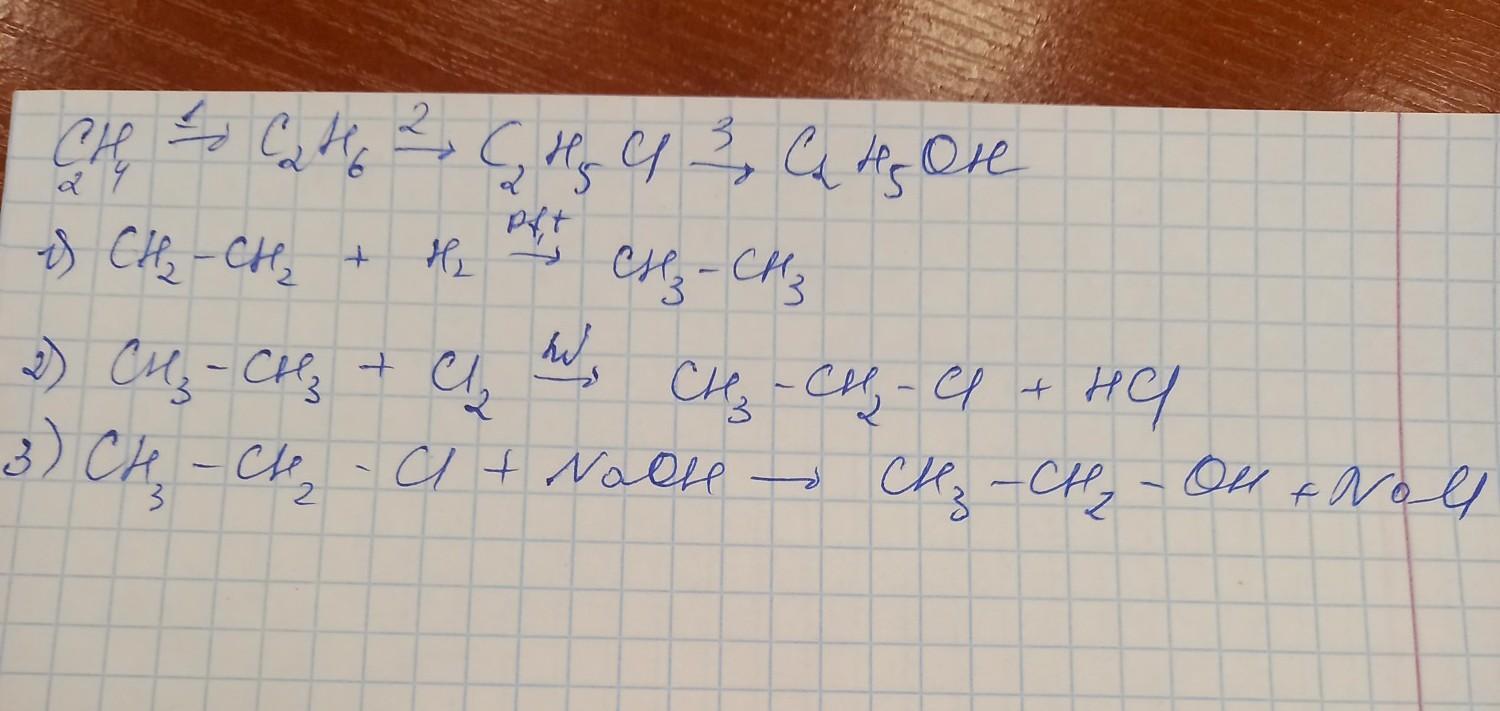 C₂H₄ →¹ C₂H₆ →² C₂H₅Cl →³ C₂H₅OH
1) CH₂-CH₂ + H₂ →(Pt,t) CH₃-CH₃
2) CH₃-CH₃ + Cl₂ →(hν) CH₃-CH₂-Cl + HCl
3) CH₃-CH₂-Cl + NaOH → CH₃-CH₂-OH + NaCl